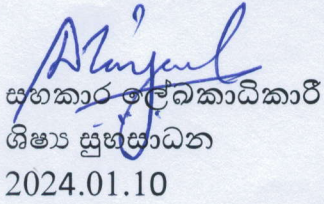 සහකාර ලේඛකාධිකාරී
ශිෂ්‍ය සුභසාධන
2024.01.10